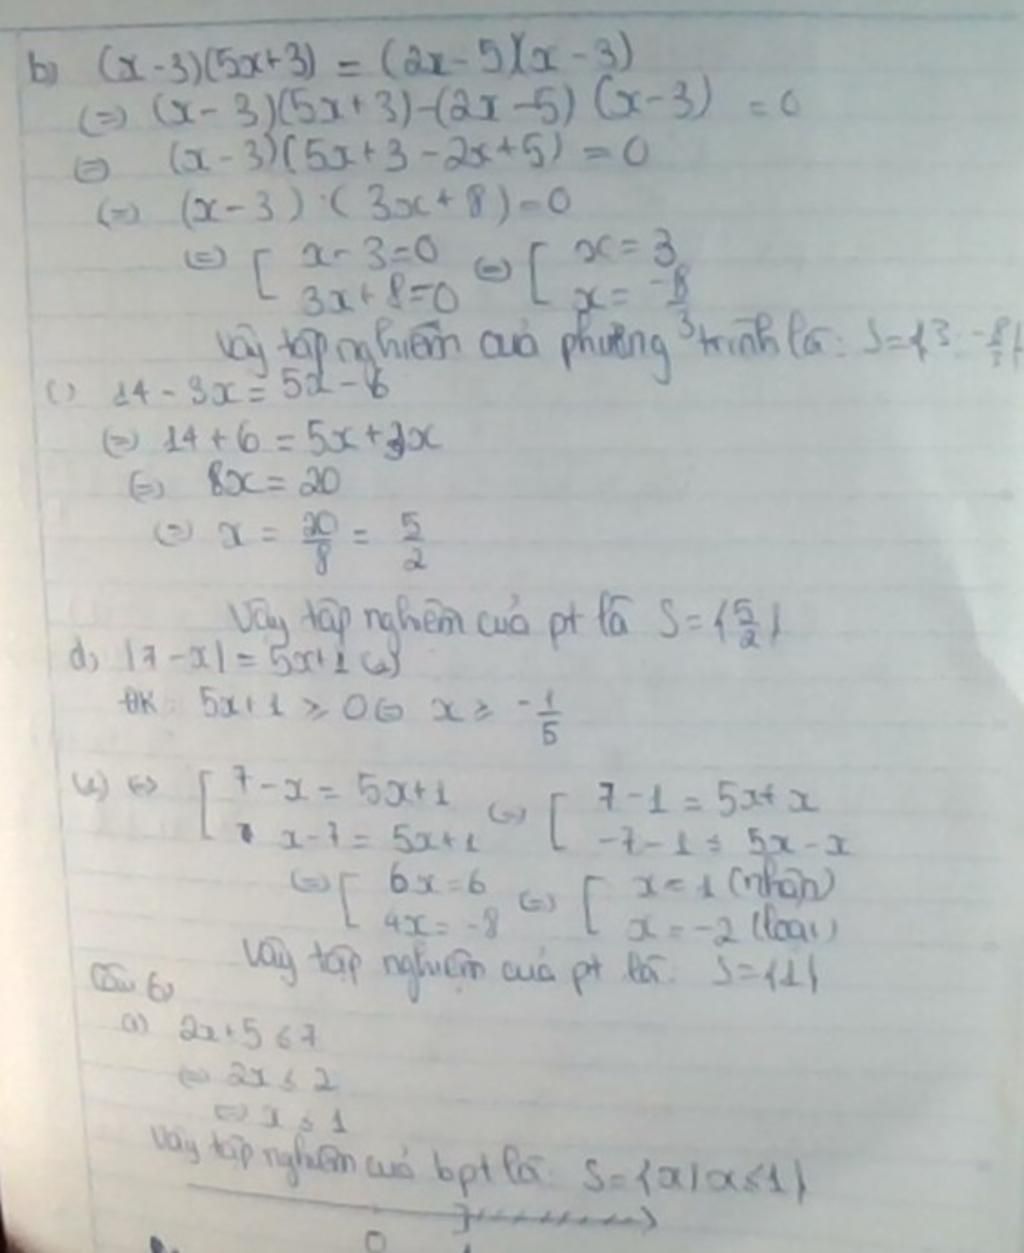 b) (x-3)(5x+3) = (2x-5)(x-3)
(=) (x-3)(5x+3)-(2x-5)(x-3) = 0
(=) (x-3)(5x+3-2x+5) = 0
(=) (x-3).(3x+8)=0
(=) [ x-3=0 (=) [ x=3
3x+8=0 x=-8/3
Vậy tập nghiệm của phương trình là: S={3; -8/3}
c) 14-3x=5x-6
(=) 14+6=5x+3x
(=) 8x=20
(=) x = 20/8 = 5/2
Vậy tập nghiệm của pt là S={5/2}
d) |7-x|=5x+1
ĐK: 5x+1 ≥ 0 (=) x ≥ -1/5
(=) [ 7-x=5x+1 (=) [ 7-1=5x+x
x-7=5x+1 -7-1=5x-x
(=) [ 6x=6 (=) [ x=1 (nhận)
4x=-8 x=-2 (loại)
Vậy tập nghiệm của pt là: S={1}
Câu 6)
a) 2x+5≤7
(=) 2x≤2
(=) x≤1
Vậy tập nghiệm của bpt là: S={x/x≤1}
0 1